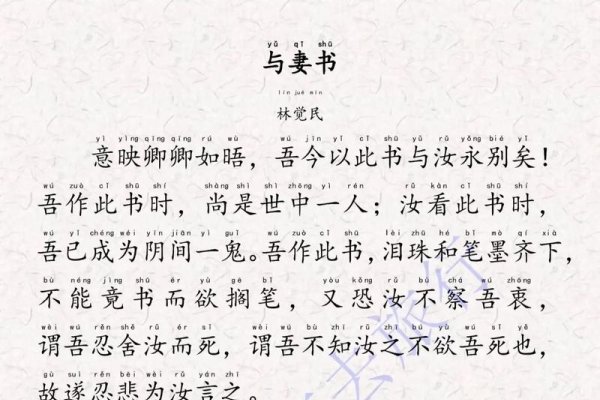 yǔ qī shū
与妻书
lín jué mín
林觉民
yì yìng qīng qīng rú wù wú jīn yǐ cǐ shū yǔ rǔ yǒng bié yǐ
意映卿卿如晤，吾今以此书与汝永别矣！
wú zuò cǐ shū shí shàng shì shì zhōng yì rén rǔ kàn cǐ shū shí
吾作此书时，尚是世中一人；汝看此书时，
wú yǐ chéng wéi yīn jiān yì guǐ wú zuò cǐ shū lèi zhū hé bǐ mò qí xià
吾已成为阴间一鬼。吾作此书，泪珠和笔墨齐下，
bù néng jìng shū ér yù gē bǐ yòu kǒng rǔ bù chá wú zhōng
不能竟书而欲搁笔，又恐汝不察吾衷，
wèi wú rěn shě rǔ ér sǐ wèi wú bù zhī rǔ zhī bú yù wú sǐ yě
谓吾忍舍汝而死，谓吾不知汝之不欲吾死也，
gù suì rěn bēi wèi rǔ yán zhī
故遂忍悲为汝言之。
去旅行